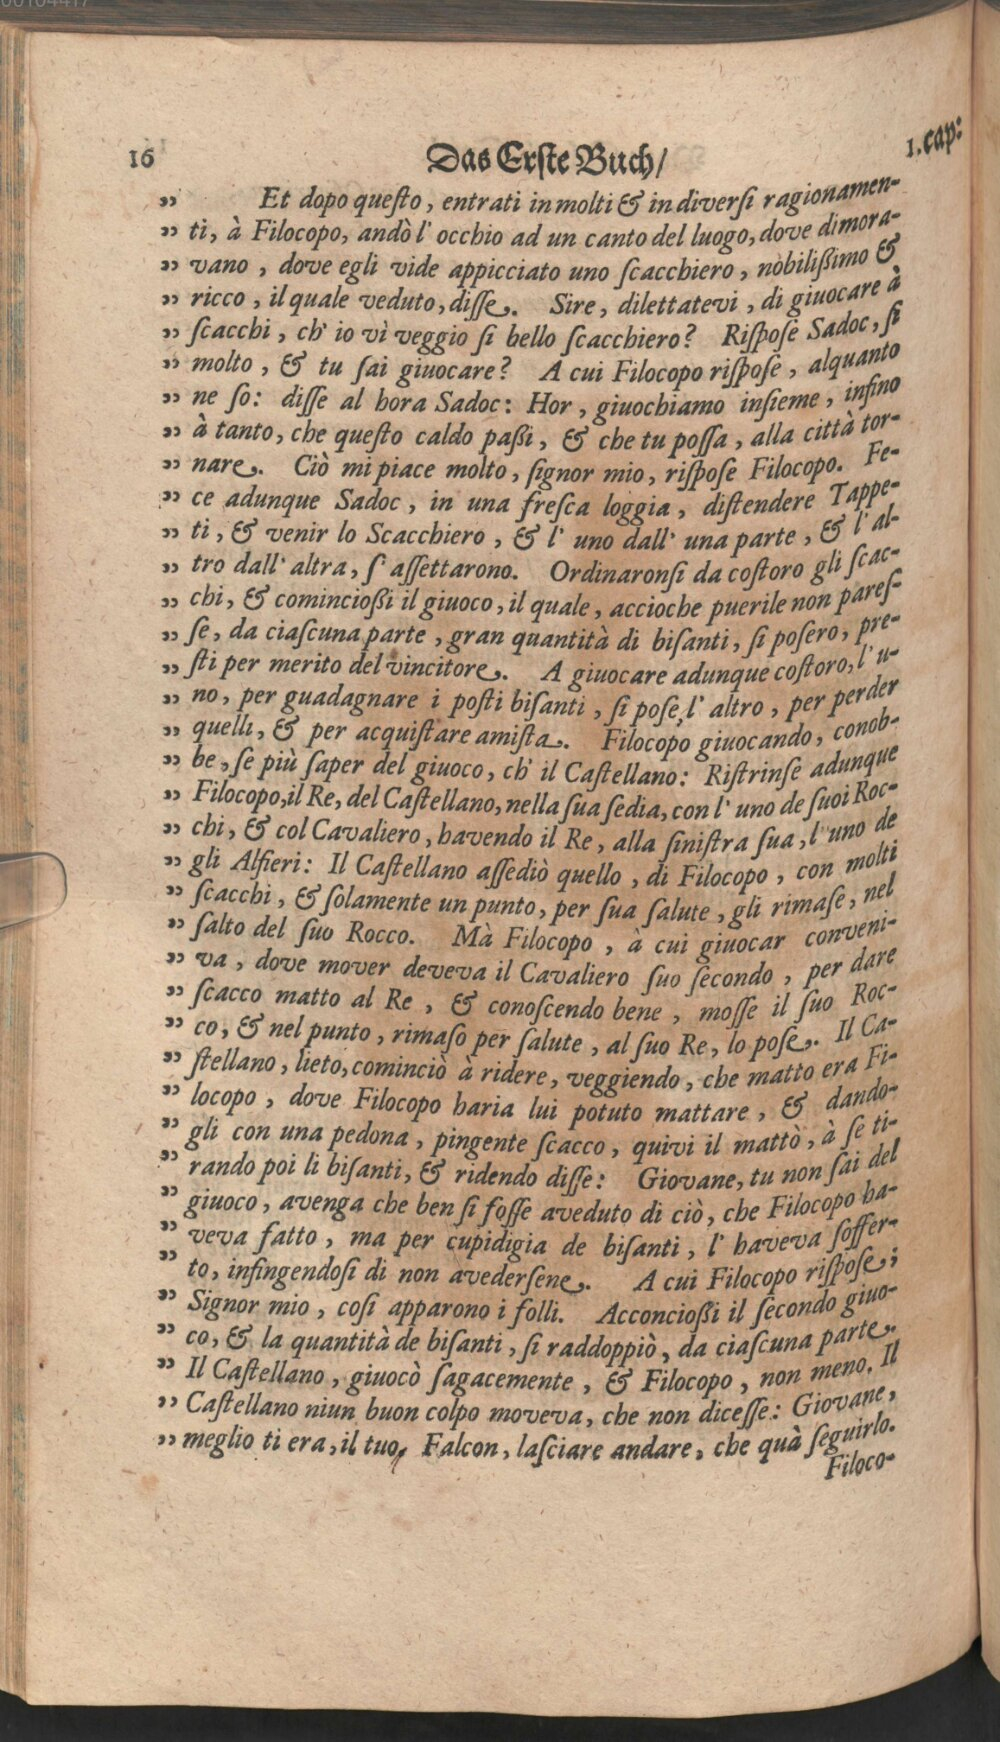 16 Das Erste Buch/ 1.cap:
„ Et dopo questo, entrati in molti & in diversi ragionamen-
„ ti, à Filocopo, andò l' occhio ad un canto del luogo, dove dimora-
„ vano, dove egli vide appicciato uno scacchiero, nobilißimo &
„ ricco, il quale veduto, disse. Sire, dilettatevi, di giuocare à
„ scacchi, ch' io vì veggio si bello scacchiero? Rispose Sadoc, si
„ molto, & tu sai giuocare? A cui Filocopo rispose, alquanto
„ ne so: disse al hora Sadoc: Hor, giuochiamo insieme, insino
„ à tanto, che questo caldo paßi, & che tu possa, alla città tor-
„ nare. Ciò mi piace molto, signor mio, rispose Filocopo. Fe-
„ ce adunque Sadoc, in una fresca loggia, distendere Tappe-
„ ti, & venir lo Scacchiero, & l' uno dall' una parte, & l' al-
„ tro dall' altra, s' assettarono. Ordinaronsi da costoro gli scac-
„ chi, & comincioßi il giuoco, il quale, accioche puerile non pares-
„ se, da ciascuna parte, gran quantità di bisanti, si posero, pre-
„ sti per merito del vincitore. A giuocare adunque costoro, l' u-
„ no, per guadagnare i posti bisanti, si pose, l' altro, per perder
„ quelli, & per acquistare amista. Filocopo giuocando, conob-
„ be, se più saper del giuoco, ch' il Castellano: Ristrinse adunque
„ Filocopo, il Re, del Castellano, nella sua sedia, con l' uno de suoi Roc-
„ chi, & col Cavaliero, havendo il Re, alla sinistra sua, l' uno de
„ gli Alfieri: Il Castellano assediò quello, di Filocopo, con molti
„ scacchi, & solamente un punto, per sua salute, gli rimase, nel
„ salto del suo Rocco. Mà Filocopo, à cui giuocar conveni-
„ va, dove mover deveva il Cavaliero suo secondo, per dare
„ scacco matto al Re, & conoscendo bene, mosse il suo Roc-
„ co, & nel punto, rimaso per salute, al suo Re, lo pose. Il Ca-
„ stellano, lieto, cominciò à ridere, veggiendo, che matto era Fi-
„ locopo, dove Filocopo haria lui potuto mattare, & dando-
„ gli con una pedona, pingente scacco, quivi il mattò, à se ti-
„ rando poi li bisanti, & ridendo disse: Giovane, tu non sai del
„ giuoco, avenga che ben si fosse aveduto di ciò, che Filocopo ha-
„ veva fatto, ma per cupidigia de bisanti, l' haveva soffer-
„ to, infingendosi di non avedersene. A cui Filocopo rispose;
„ Signor mio, cosi apparono i folli. Acconcioßi il secondo giuo-
„ co, & la quantità de bisanti, si raddoppiò, da ciascuna parte.
„ Il Castellano, giuocò sagacemente, & Filocopo, non meno. Il
„ Castellano niun buon colpo moveva, che non dicesse: Giovane,
„ meglio ti era, il tuo, Falcon, lasciare andare, che quà seguirlo.
Filoco-